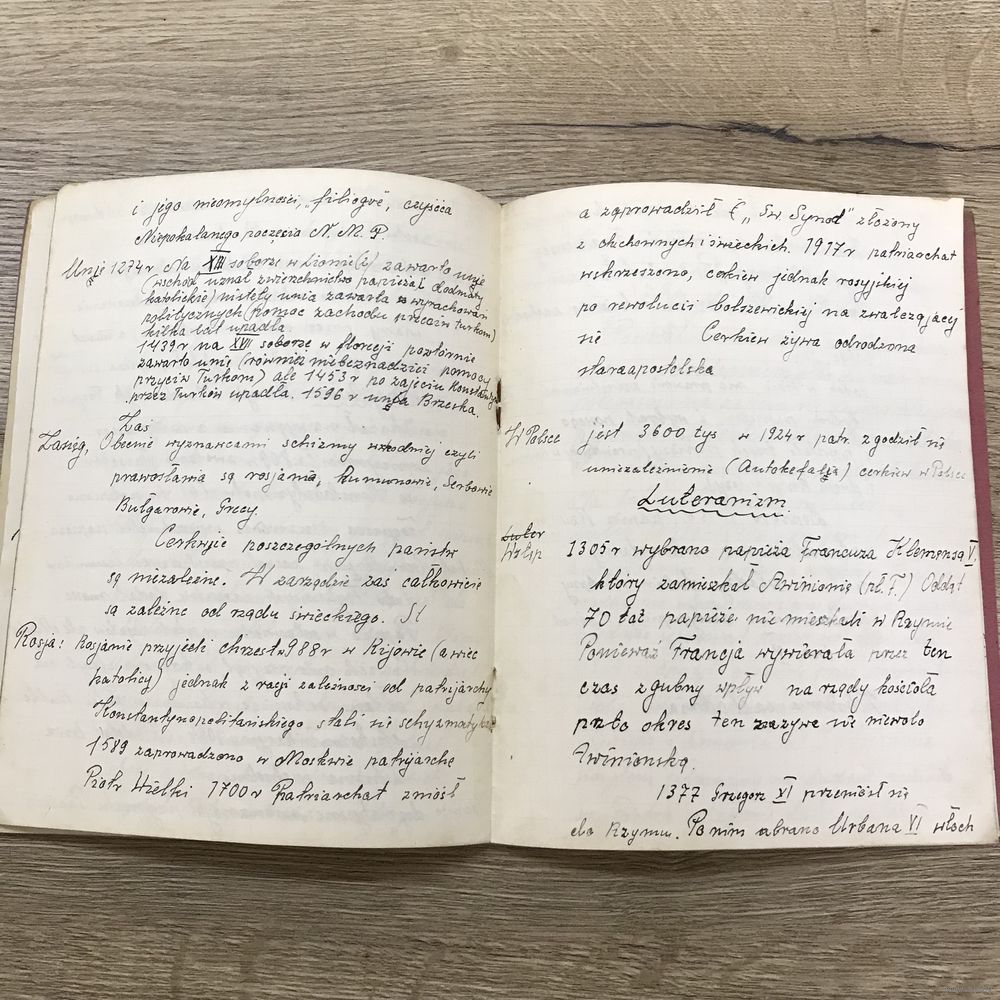 i jego nieomylności, „filiogve", czyśćca
Niepokalanego poczęcia N. M. P.
Unje 1274r Na XIII soborze w Lionie(ż) zawarto unję
(wschód uznał zwierzchnictwo papieża i dodmaty
katolickie) nistety unia zawarta w wyrachowań
politycznych (Pomoc zachodu przeciw turkom)
kilka lat upadła.
1439r na XVII soborze we florecji powtórnie
zawarto unię (również nibeznadziei pomocy
przyciw Turkom) ale 1453r po zajęciu Konstanty
przez Turków upadła. 1596 r unja Brzeska.
Zas
Zasięg, Obecnie wyznawcami schizmy wschodniej czyli
prawosławia są rosjanie, Rumunowie, Serbowie
Bułgarowie, Grecy.
Cerkwie poszczególnych państw
są niezależne. W zarządzie zaś całkowicie
są zależne od rządu świeckiego. Sl
Rosja: Rosjanie przyjęli chrzest w 988r w Kijowie (a więc
katolicy) jednak z racji zależności od patrijarchy
Konstantynopolitańskiego stali się schyzmatykami
1589 zaprowadzono w Moskwie patrijarchę
Piotr Wielki 1700r Patriarchat zniósł
a zaprowadził „Św. Synod" złożony
z duchownych i świeckich. 1917r patriarchat
wskrzeszono, cerkiew jednak rosyjskiej
po rewolucii bolszewickiej na zwalczającej
się Cerkiew żywa odrodzona
staraapostolska
W Polsce jest 3600 tys w 1924r patr. zgodził się
uniezależnienie (Autokefalia) cerkiew w Polsce
Luteranizm.
Luter
Wstęp 1305r wybrano papieża Francuza Klemensa V.
który zamieszkał Awinionie (pł. F.) Oddąt
70 lat papieże nie mieszkali w Rzymie
Ponieważ Francja wywierała przez ten
czas zgubny wpływ na rządy kościoła
przto okres ten nazywa się niewolo
Awinionską.
1377 Grzegorz XI przeniósł się
do Rzymu. Po nim obrano Urbana VI włoch